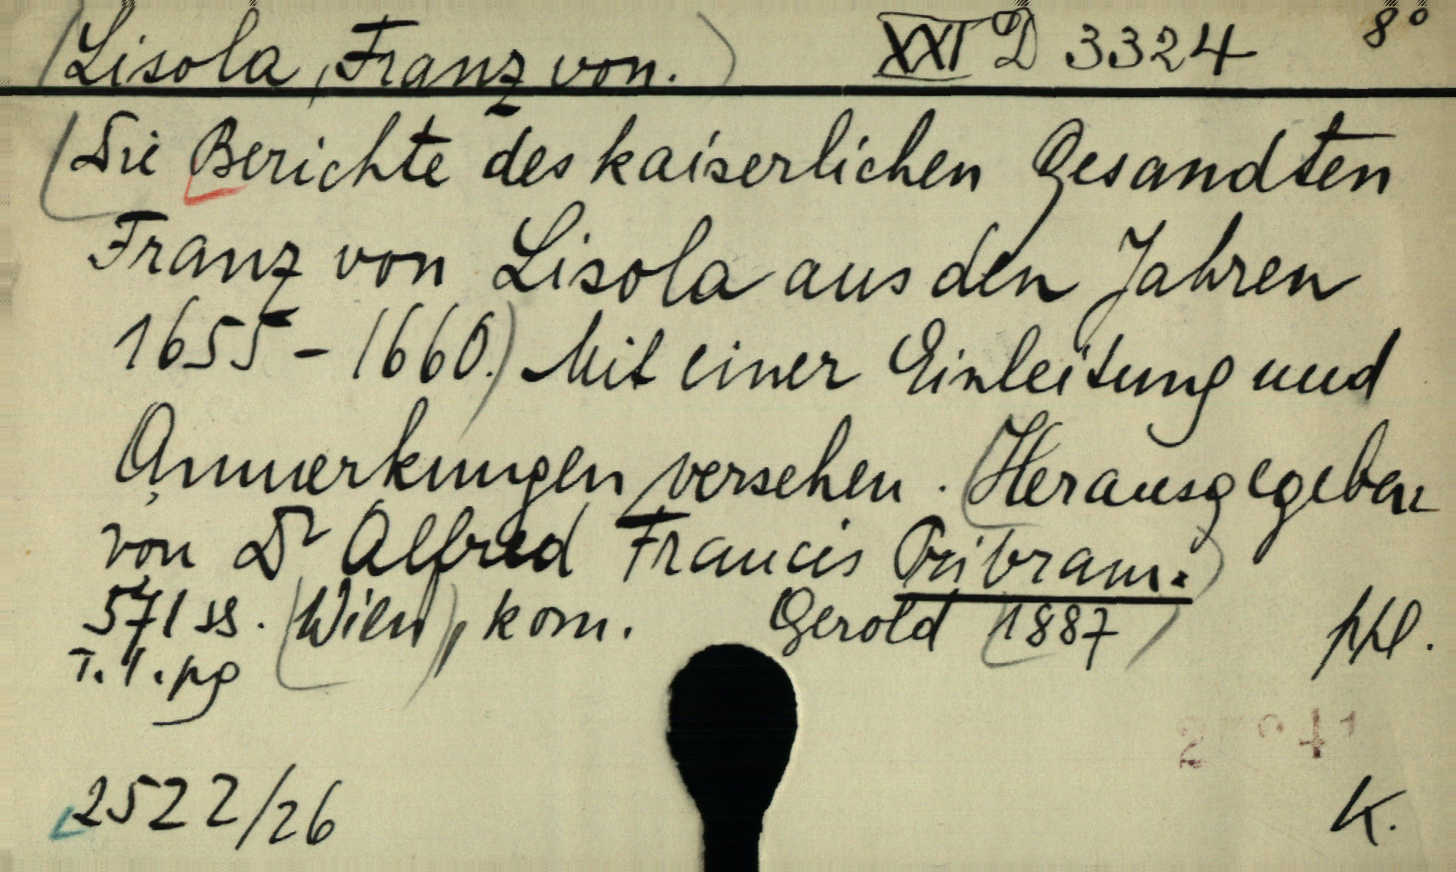 (Lisola, Franz von.) XXI D 3324 8°
(Die Berichte des kaiserlichen Gesandten
Franz von Lisola aus den Jahren
1655-1660.) Mit einer Einleitung und
Anmerkungen versehen. (Herausgegeben
von Dr Alfred Francis Pribram.)
571 ss. (Wien), kom. Gerold (1887) ppl.
T. 1. pg
2522/26 K.